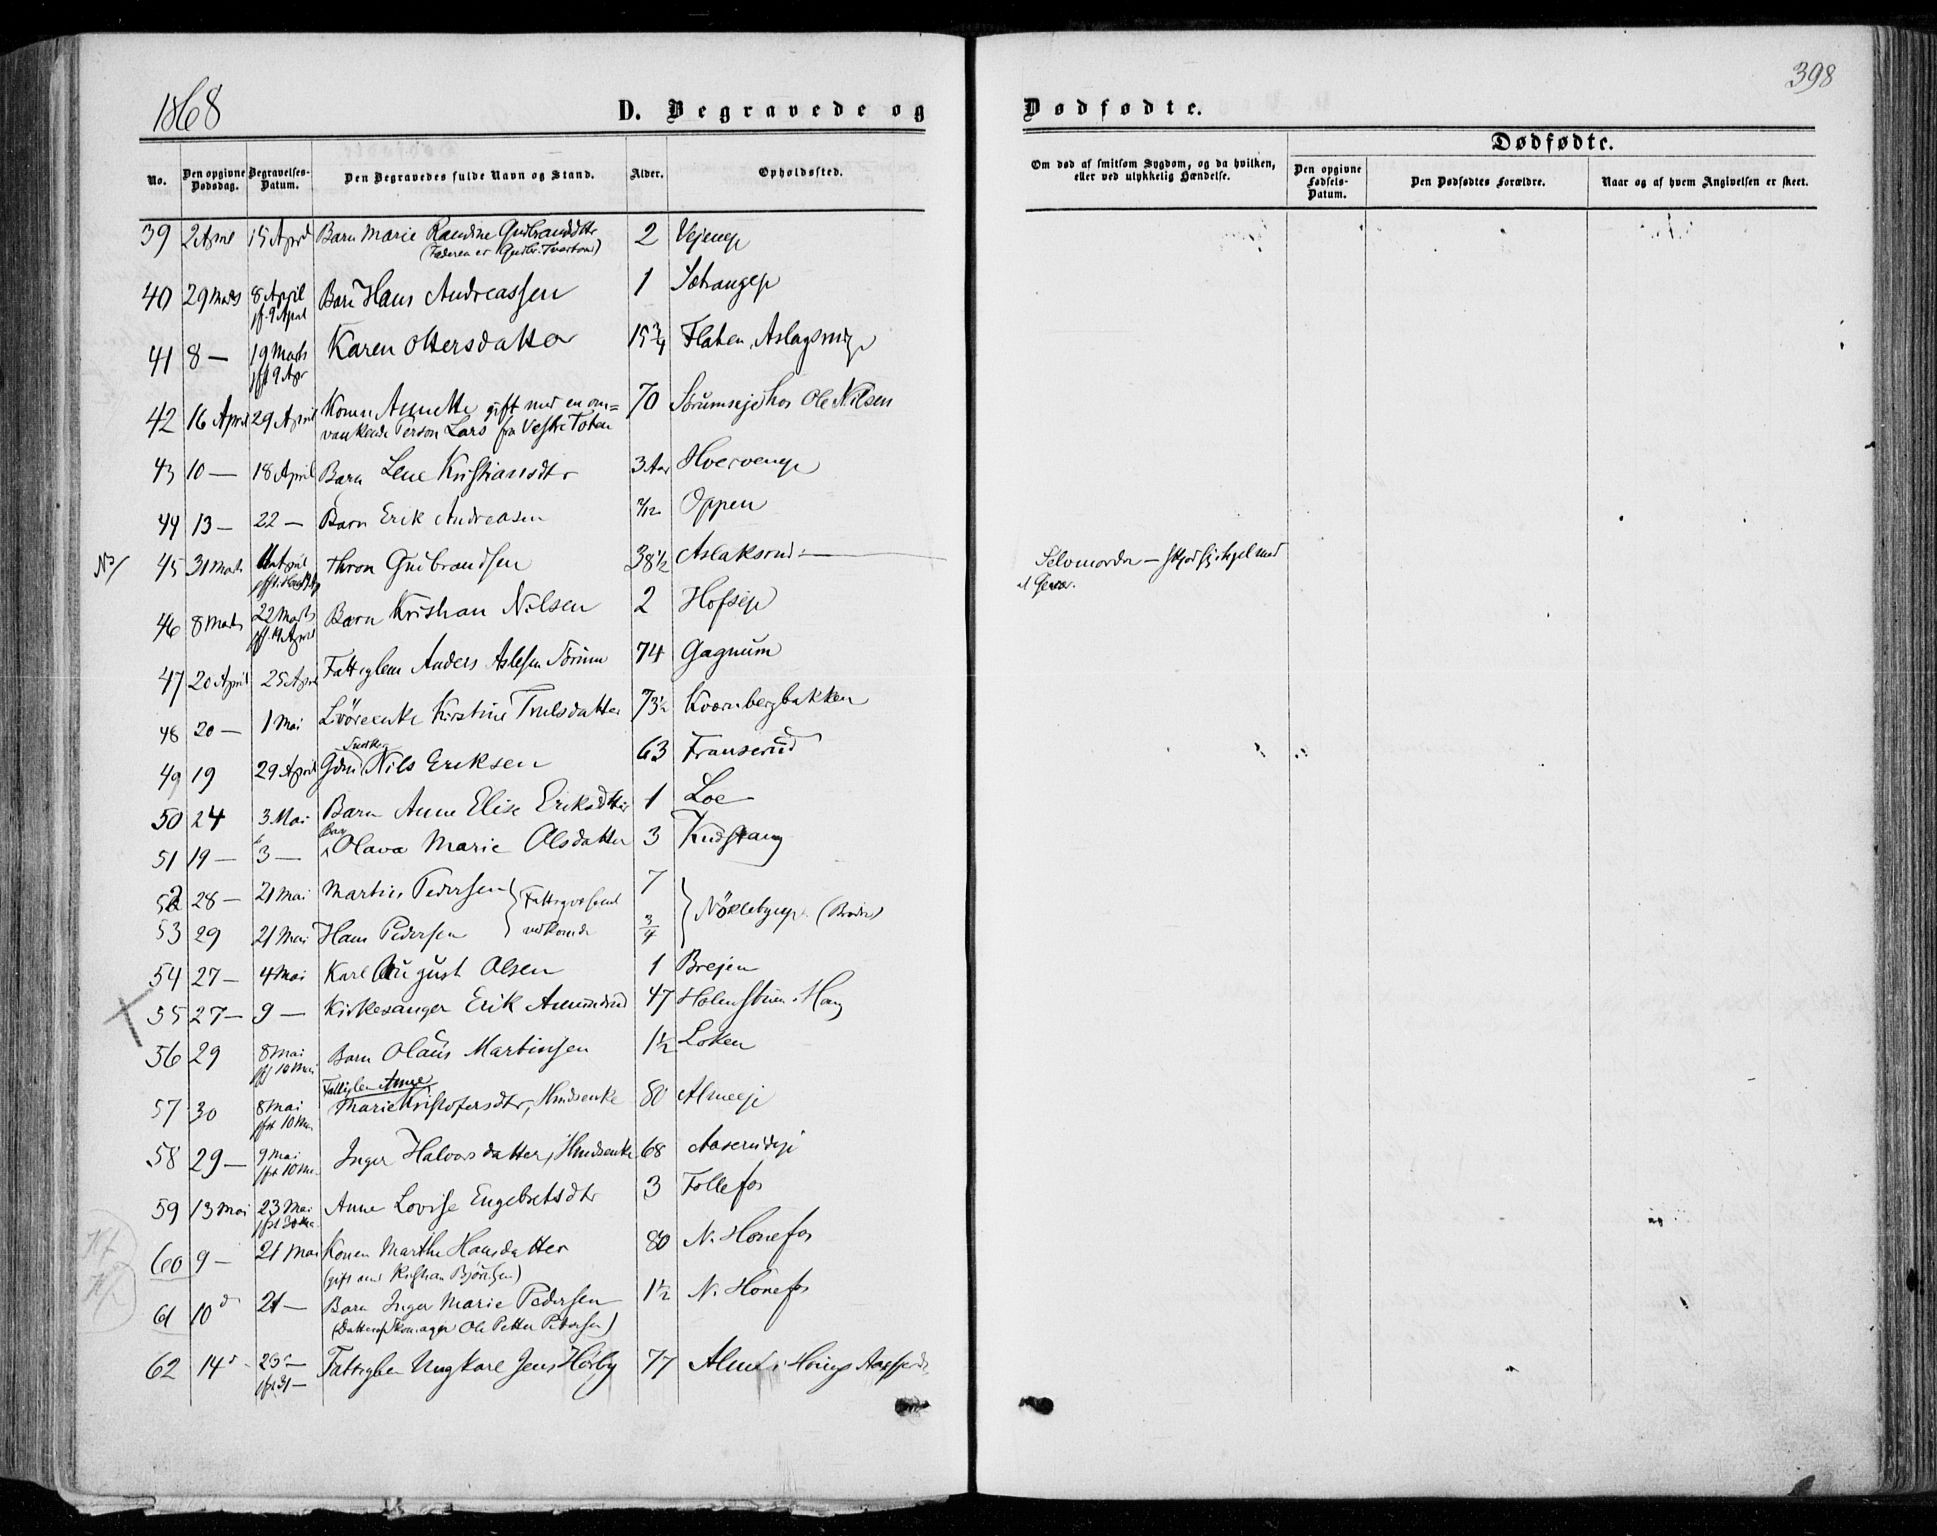 398
1868 D. Begravede og Dødfødte.
Dødfødte.
No. Den opgivne Dødsdag. Begravelses-Datum. Den Begravedes fulde Navn og Stand. Alder. Opholdssted. Om død af smitsom Sygdom, og da hvilken, eller ved ulykkelig Hændelse. Den opgivne Fødsels-Datum. Den Dødfødtes Forældre. Naar og af hvem Angivelsen er skeet.
39 2 April 15 April Barn Marie Randine Gudbrandsdtr 2 Vejeneje
(Faderen er Gudbr.
40 29 Marts 8 April Barn Hans Andreassen 1 Sætrangeje
pf. 9 April
41 8 — 19 Marts Karen Ottersdatter 15 3/4 Flaten, Aslagsrudeje
pfst 9 Apr
42 16 April 29 April Konen Annette gift med en om= 70 Sørumseje hos Ole Nilsen
vankende Person Lars fra Vestre Toten
43 10 — 18 April Barn Lene Kristiansdtr 3 Aar Hverveneje
44 13 — 22 — Barn Erik Andreasen Oppen
45 31 Marts 11 April Thron Gudbrandsen 38 1/2 Aslaksrud — Selvmorder — skjød sig ihjel med
et Gevær.
46 8 Marts 22 Marts Barn Kristian Nilsen 2 Hofseje
pf. 19 April
47 20 April 25 April Fattiglem Anders Aslesen Sørum 74 Gagnum
48 20 — 1 Mai Livøreenke Kirstine Trulsdatter 73 1/2 Kværnbergbakken
49 19 29 April Gdm Nils Eriksen 63 Franserud
50 24 3 Mai Barn Anne Elise Eriksdtter 1 Loe
51 19 — 3 — Barn Olava Marie Olsdatter 3 Knestang
52 28 — 21 Mai Martin Pedersen } Fattigvæsenet 7 } Nöklebyeje (Brødre)
53 29 21 Mai Hans Pedersen vedkomde 3/4
54 27 — 4 Mai Karl August Olsen 1 Brejen
55 27 — 9 — Kirkesanger Erik Amundrud 47 Holmstuen i Haug
56 29 8 Mai Barn Olaus Martinsen 1 1/2 Loken
pf 10 Mai
Fattiglem Anne
57 30 8 Mai Marie Kristofersdtr, Hmdsenke 80 Almeeje
pfst 10 Mai
58 29 — 9 Mai Inger Halvorsdatter, Hmdsenke 68 Aaserudeje
pfst 10 Mai
59 13 Mai 23 Mai Anne Lovise Engebretsdtr 3 Follefos
60 9 — 21 Mai Konen Marthe Hansdatter 80 N. Honefos
(gift med Kristian Björnsen)
61 10 d 21 — Barn Inger Marie Pedersen 1 1/2 N. Honefos
(Datter af Skomager Ole Petter Petersen)
62 14 d 23 — Fattiglem Ungkarl Jens Hørby 77
pfst 31 —